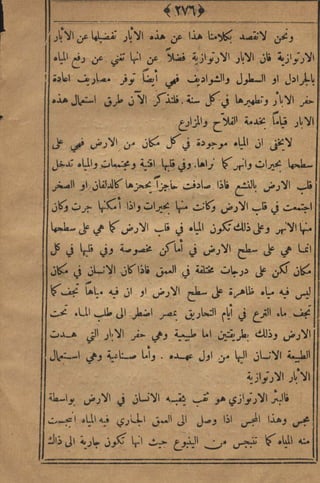 ﴿ ٢٧٦ ﴾
ونحن لانقصد بكلامنا هذا عن هذه الآبار تفضيلها عن الآبار
الارتوازية فان الابار الارتوازية فضلاً عن انها تغني عن رفع المياه
بالجرادل او السطول والشواديف فهي أيضاً توفر مصاريف اعادة
حفر الابار وتطهيرها في كل سنة. فلنذكر الآن طرق استعمال هذه
الابار قياماً بخدمة الفلاح والمزارع
لايخفى ان المياه موجودة في كل مكان من الارض فهي على
سطحها بحيرات وانهر كما نراها. وفي قلبها اقنية ومجتمعات والمياه تدخل
قلب الارض بالنشع فاذا صادفت حاجزاً يحجزها كالدلغان او الصخر
اجتمعت في قلب الارض وكانت منها بحيرات واذا أمكنها جرت وكان
منها الانهر وعلى ذلك تكون المياه في قلب الارض كما هي على سطحها
انما هي على سطح الارض في أماكن مخصوصة وفي قلبها في كل
مكان لكن على درجات مختلفة في العمق فاذا كان الانسان في مكان
ليس فيه مياه ظاهرة على سطح الارض او ان فيه مياهاً تجف كما
تجف ماء الترع في أيام التحاريق بمصر اضطر الى طلب الماء تحت
الارض وذلك بطريقتين اما طبيعية وهي حفر الابار التي هدت
الطبيعة الانسان اليها من اول عهده. وأما صناعية وهي استعمال
الآبار الارتوازية
فالبئر الارتوازي هو ثقب يثقبه الانسان في الارض بواسطة
مجس وهذا المجس اذا وصل الى العمق الجاري فيه المياه انبجست
منه المياه كما تنبجس من الينبوع حيث انها تكون جارية الى ذاك